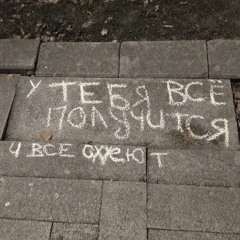 У ТЕБЯ ВСЁ
ПОЛУЧИТСЯ
И ВСЕ ОХУЕЮТ